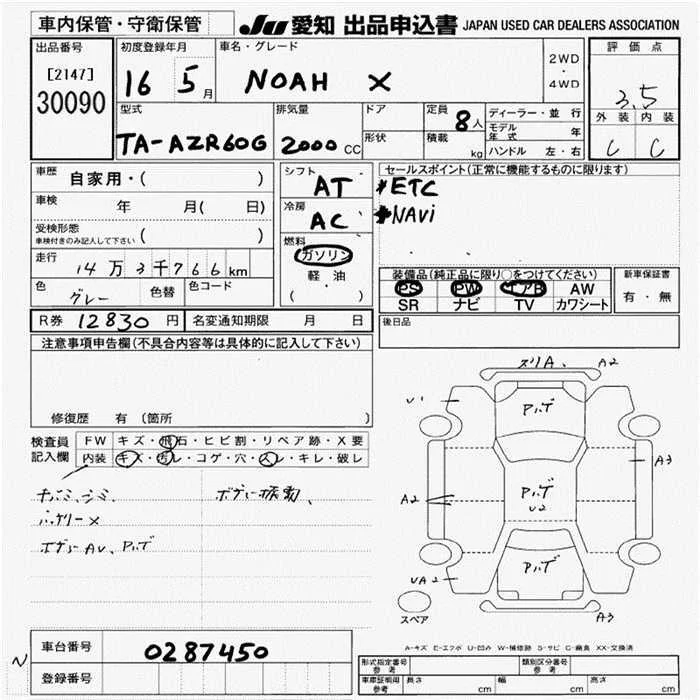 車内保管・守衛保管
JU 愛知 出品申込書 JAPAN USED CAR DEALERS ASSOCIATION
出品番号
[2147]
30090
初度登録年月
16 5月
車名・グレード
NOAH X
2WD
・
4WD
評価点
3.5
外装 内装
C C
型式
TA-AZR60G
排気量
2000 CC
ドア
形状
定員 8人
積載 kg
ディーラー・並行
モデル年式 年
ハンドル 左・右
車歴 自家用・( )
車検 年 月( 日)
受検形態
車検付きのみ記入して下さい ( )
走行 14万3千766km
色 グレー 色替 色コード
シフト AT
冷房 AC
燃料
ガソリン
軽油
( )
セールスポイント(正常に機能するものに限ります)
*ETC
*NAVi
装備品(純正品に限り○をつけてください)
PS PW エアB AW
SR ナビ TV カワシート
新車保証書
有・無
R券 12830円 名変通知期限 月 日
後日品
注意事項申告欄(不具合内容等は具体的に記入して下さい)
修復歴 有 (箇所 )
検査員記入欄
FW キズ・飛石・ヒビ割・リペア跡・X要
内装 キズ・汚レ・コゲ・穴・スレ・キレ・破レ
バッテリー×
ボデーAU、Pハゲ
スリA. A2
U1
Pハゲ
A3
A2
Pハゲ
U2
UA2
Pハゲ
A3
スペア
A-キズ E-エクボ U-凹み W-補修跡 S-サビ C-腐食 XX-交換済
車台番号 0287450
N
登録番号
形式指定番号 参考
類別区分番号 参考
車庫証明用 参考 長さ cm 幅 cm 高さ cm